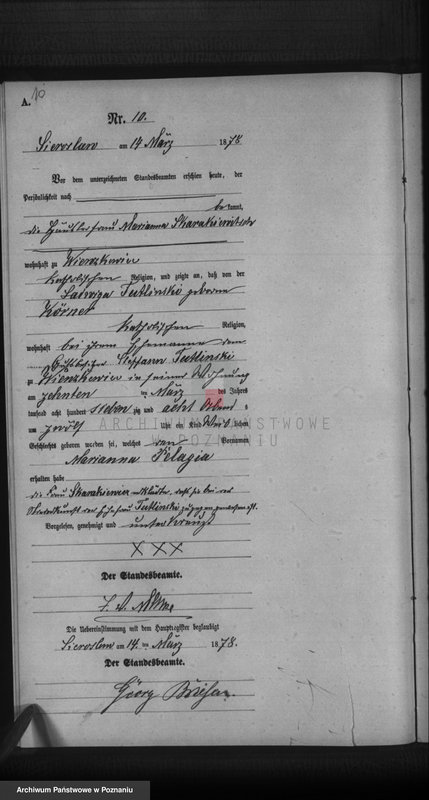 A. 10
Nr. 10.
Sieroslaw am 14 März 1878
Vor dem unterzeichneten Standesbeamten erschien heute, der
Persönlichkeit nach
bekannt,
die Häuslerfrau Marianna
wohnhaft zu Wienskowice
katholischen Religion, und zeigte an, daß von der
Ludwiga Tutlinski geborene
Körner
katholischen Religion,
wohnhaft bei ihrem Ehemanne dem
Stephann Tutlinski
zu Wienskowice in seiner Wohnung
am zehnten ten März des Jahres
tausend acht hundert sieben zig und acht
um zwölf Uhr ein Kind weiblichen
Geschlechts geboren worden sei, welches den Vornamen
Marianna Pelagia
erhalten habe
die Frau erklärte, daß sie bei der
Niederkunft der Ehefrau Tutlinski zugegen gewesen ist.
Vorgelesen, genehmigt und unterkreuzt
XXX
Der Standesbeamte.
Die Uebereinstimmung mit dem Hauptregister beglaubigt
Sieroslaw am 14. ten März 1878.
Der Standesbeamte.
Georg
ARCHIWUM PAŃSTWOWE
W POZNANIU
Archiwum Państwowe w Poznaniu